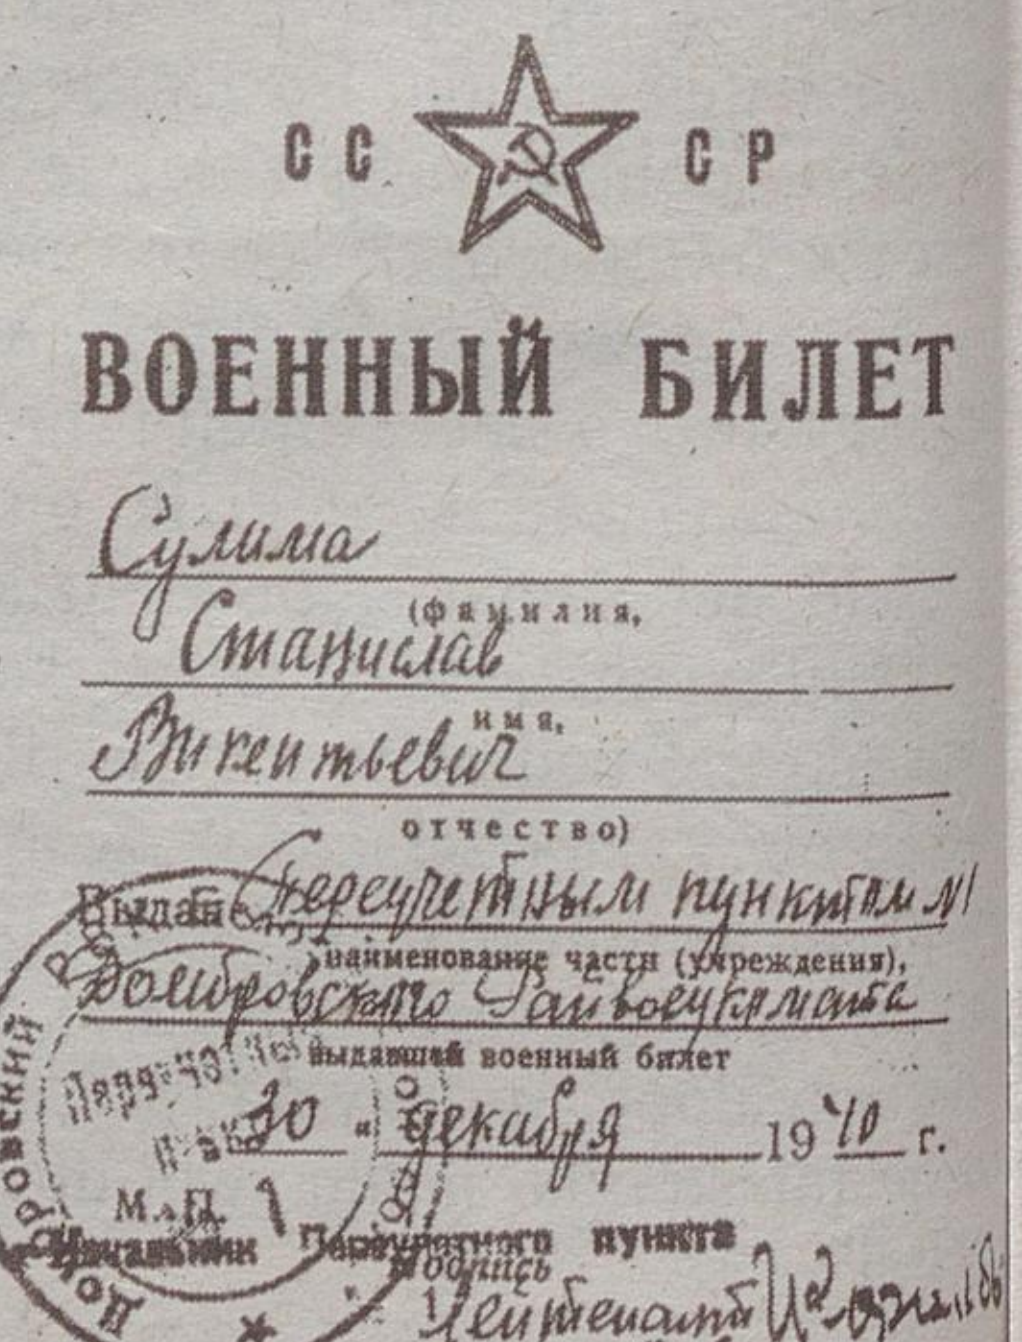 СССР
ВОЕННЫЙ БИЛЕТ
Сулима
(фамилия,
Станислав
имя,
Викентьевич
отчество)
Выдан Переучетным пунктом №1
наименование части (учреждения),
Домбровского Райвоенкомата
выдавший военный билет
30 " декабря 1940 г.
М. П.
Начальник Переучетного пункта
подпись
Лейтенант